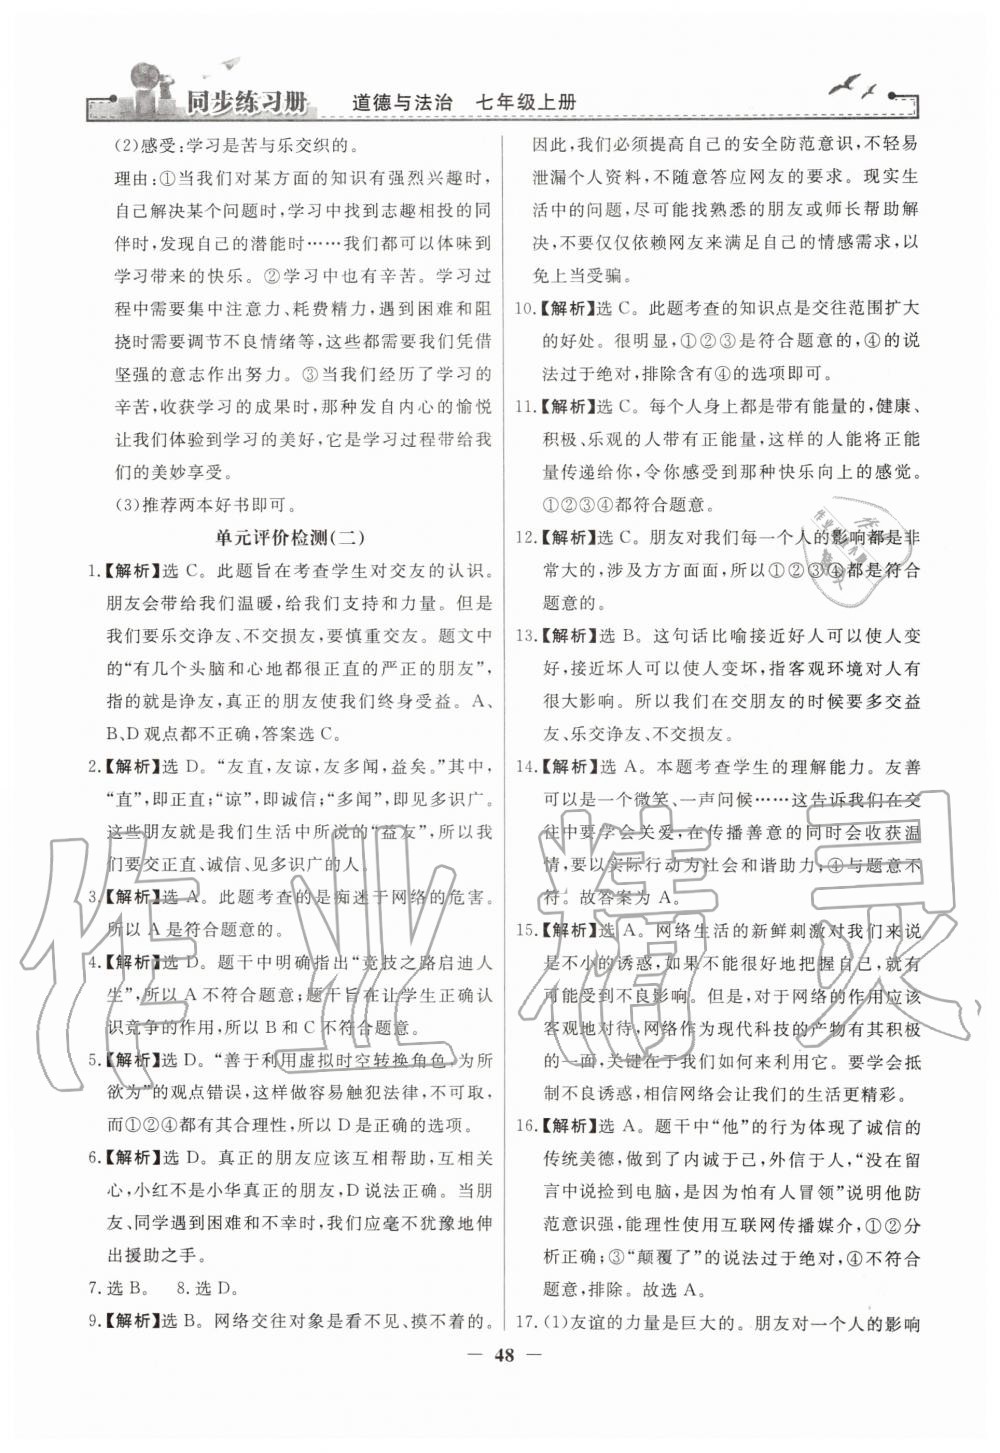 同步练习册 道德与法治 七年级上册
(2)感受:学习是苦与乐交织的。
理由:①当我们对某方面的知识有强烈兴趣时,
自己解决某个问题时,学习中找到志趣相投的同
伴时,发现自己的潜能时……我们都可以体味到
学习带来的快乐。②学习中也有辛苦。学习过
程中需要集中注意力、耗费精力,遇到困难和阻
挠时需要调节不良情绪等,这些都需要我们凭借
坚强的意志作出努力。③当我们经历了学习的
辛苦,收获学习的成果时,那种发自内心的愉悦
让我们体验到学习的美好,它是学习过程带给我
们的美妙享受。
(3)推荐两本好书即可。
单元评价检测(二)
1.【解析】选 C。此题旨在考查学生对交友的认识。
朋友会带给我们温暖,给我们支持和力量。但是
我们要乐交诤友、不交损友,要慎重交友。题文中
的“有几个头脑和心地都很正直的严正的朋友”,
指的就是诤友,真正的朋友使我们终身受益。A、
B、D 观点都不正确,答案选 C。
2.【解析】选 D。“友直,友谅,友多闻,益矣。”其中,
“直”,即正直;“谅”,即诚信;“多闻”,即多见识广。
这些朋友就是我们生活中所说的“益友”,所以我
们要交正直、诚信、见多识广的人。
3.【解析】选 A。此题考查的是痴迷于网络的危害。
所以 A 是符合题意的。
4.【解析】选 D。题干中明确指出“竞技之路启迪人
生”,所以 A 不符合题意;题干旨在让学生正确认
识竞争的作用,所以 B 和 C 不符合题意。
5.【解析】选 D。“善于利用虚拟时空转换角色,为所
欲为”的观点错误,这样做容易触犯法律,不可取,
而①②④都有其合理性,所以 D 是正确的选项。
6.【解析】选 D。真正的朋友应该互相帮助,互相关
心,小红不是小华真正的朋友,D 说法正确。当朋
友、同学遇到困难和不幸时,我们应毫不犹豫地伸
出援助之手。
7.选 B。 8.选 D。
9.【解析】选 B。网络交往对象是看不见、摸不着的。
因此,我们必须提高自己的安全防范意识,不轻易
泄漏个人资料,不随意答应网友的要求。现实生
活中的问题,尽可能找熟悉的朋友或师长帮助解
决,不要仅仅依赖网友来满足自己的情感需求,以
免上当受骗。
10.【解析】选 C。此题考查的知识点是交往范围扩大
的好处。很明显,①②③是符合题意的,④的说
法过于绝对,排除含有④的选项即可。
11.【解析】选 C。每个人身上都是带有能量的,健康、
积极、乐观的人带有正能量,这样的人能将正能
量传递给你,令你感受到那种快乐向上的感觉。
①②③④都符合题意。
12.【解析】选 C。朋友对我们每一个人的影响都是非
常大的,涉及方方面面,所以①②③④都是符合
题意的。
13.【解析】选 B。这句话比喻接近好人可以使人变
好,接近坏人可以使人变坏,指客观环境对人有
很大影响。所以我们在交朋友的时候要多交益
友、乐交诤友、不交损友。
14.【解析】选 A。本题考查学生的理解能力。友善
可以是一个微笑、一声问候……这告诉我们在交
往中要学会关爱,在传播善意的同时会收获温
情,要以实际行动为社会和谐助力;④与题意不
符。故答案为 A。
15.【解析】选 A。网络生活的新鲜刺激对我们来说
是不小的诱惑,如果不能很好地把握自己,就有
可能受到不良影响。但是,对于网络的作用应该
客观地对待,网络作为现代科技的产物有其积极
的一面,关键在于我们如何来利用它。要学会抵
制不良诱惑,相信网络会让我们的生活更精彩。
16.【解析】选 A。题干中“他”的行为体现了诚信的
传统美德,做到了内诚于己,外信于人,“没在留
言中说捡到电脑,是因为怕有人冒领”说明他防
范意识强,能理性使用互联网传播媒介,①②分
析正确;③“颠覆了”的说法过于绝对,④不符合
题意,排除。故选 A。
17.(1)友谊的力量是巨大的。朋友对一个人的影响
— 48 —
作业精灵